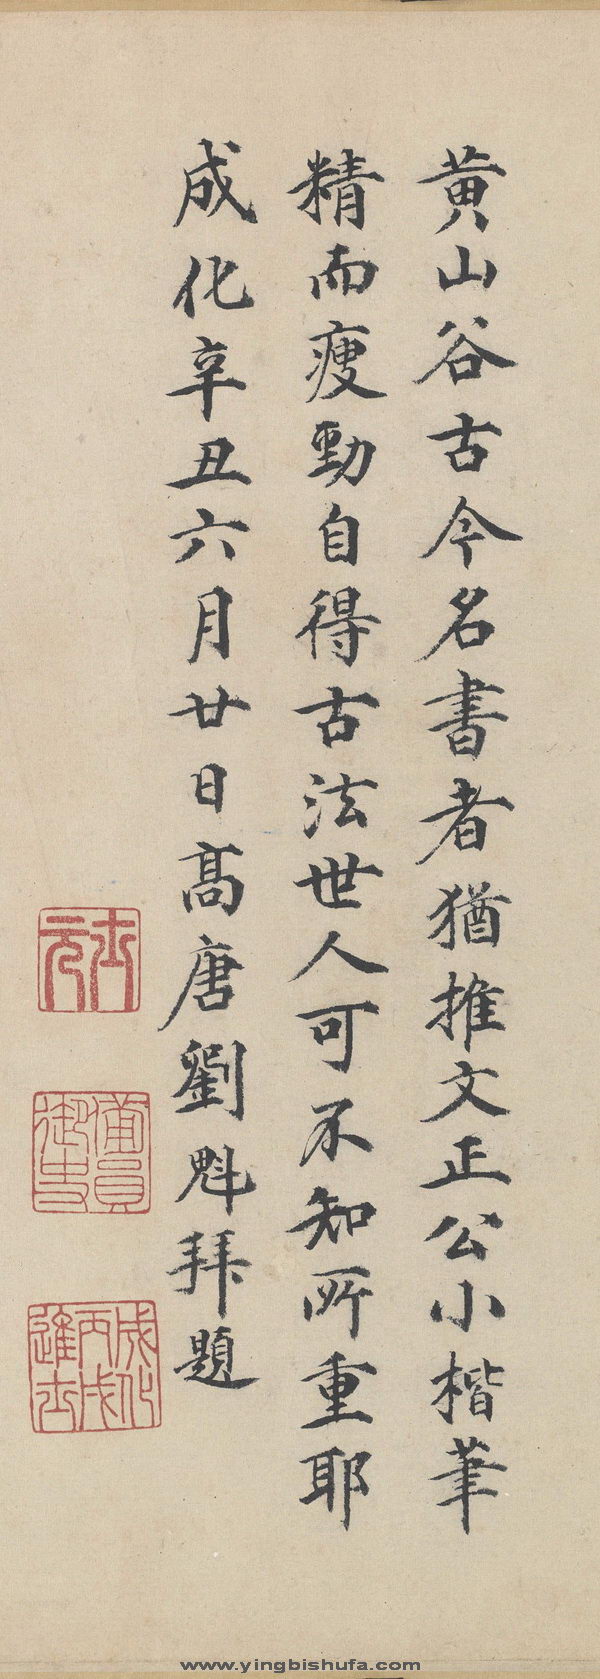 黄山谷古今名書者猶推文正公小楷筆
精而瘦勁自得古法世人可不知所重耶
成化辛丑六月廿日高唐劉魁拜題
士元
備員御史
成化丙戌進士
www.yingbishufa.com